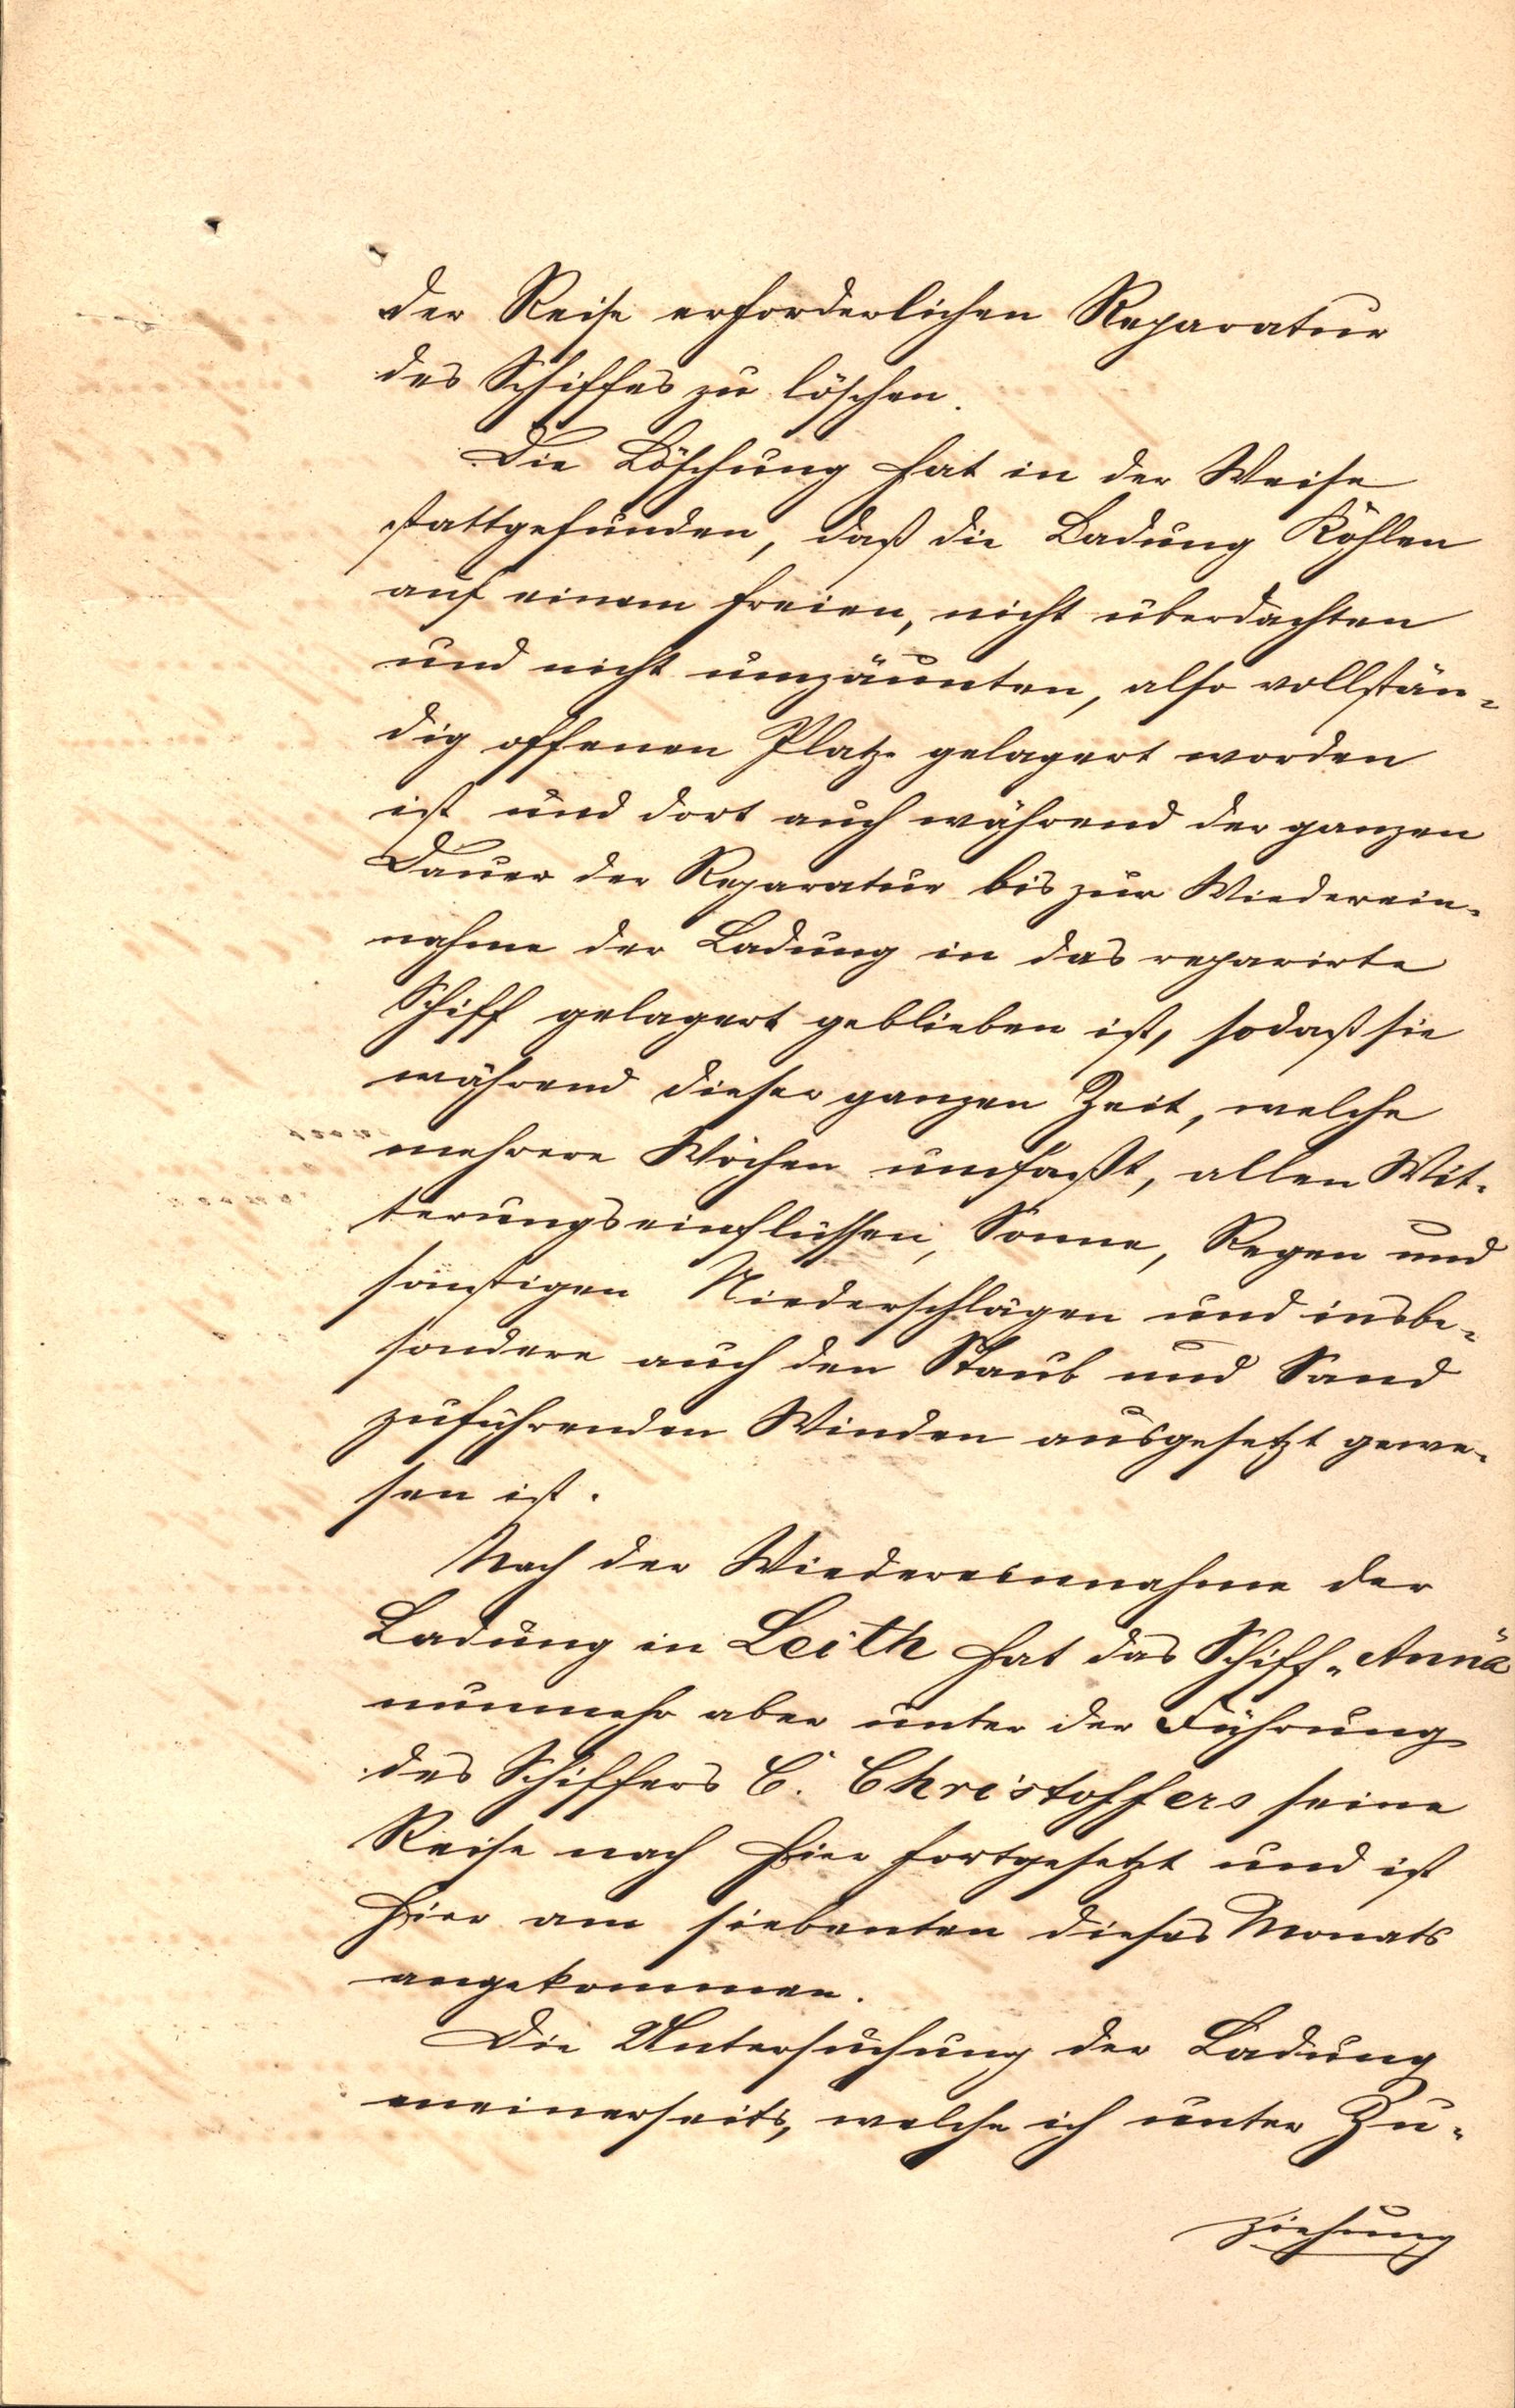 der Reise erforderlichen Reparatur
des Schiffes zu löschen.
Die Löschung hat in der Weise
stattgefunden, daß die Ladung Kohlen
auf einem freien, nicht überdachten
und nicht umzäunten, also vollstän-
dig offenen Platze gelagert worden
ist und dort auch während der ganzen
Dauer der Reparatur bis zur Wiederein-
nahme der Ladung in das reparirte
Schiff gelagert geblieben ist, sodaß sie
während dieser ganzen Zeit, welche
mehrere Wochen umfaßt, allen Wit-
terungseinflüssen, Sonne, Regen und
sonstigen Niederschlägen und insbe-
sondere auch den Staub und Sand
zuführenden Winden ausgesetzt gewe-
sen ist.
Nach der Wiedereinnahme der
Ladung in Leith hat das Schiff „Anna“
nunmehr aber unter der Führung
des Schiffers C. Christoffers seine
Reise nach hier fortgesetzt und ist
hier am siebenten dieses Monats
angekommen.
Die Untersuchung der Ladung
meinerseits, welche ich unter Zu-
ziehung